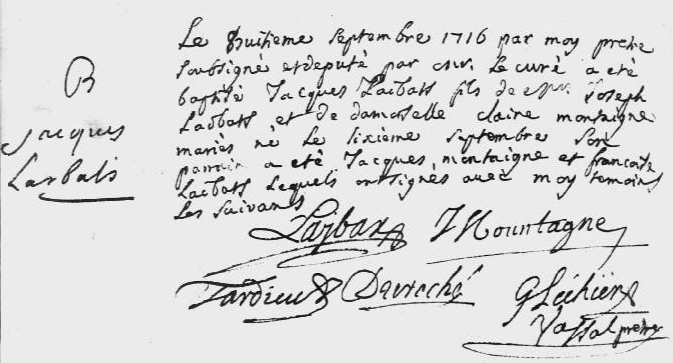 B
Jacques
Laxbats
Le huitieme Septembre 1716 par moy pretre
soubsigné et deputé par mr. Le curé a eté
baptisé Jacques Laxbats fils de mr. Joseph
Laxbats et de damoiselle claire montaigne
mariés né Le sixième Septembre Son
parrain a eté Jacques montaigne et francoise
Laxbats Lequels ont signés avec moy temoins
Les suivants
J Mountagne
Tardieu
G Lechiere
Vassal pretre